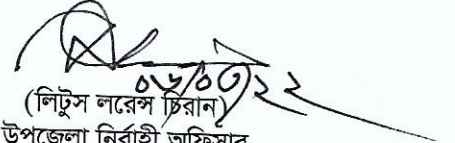 ০৬/০৩/২২
(লিটুস লরেন্স চিরান)
উপজেলা নির্বাহী অফিসার